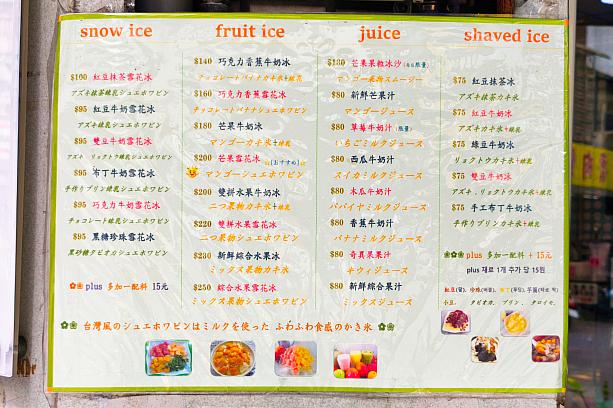 snow ice
$100 紅豆抹茶雪花冰
アズキ抹茶練乳シュエホワピン
$95 紅豆牛奶雪花冰
アズキ練乳シュエホワピン
$95 雙豆牛奶雪花冰
アズキ リョクトウ練乳シュエホワピン
$95 布丁牛奶雪花冰
手作りプリン練乳シュエホワピン
$95 巧克力牛奶雪花冰
チョコレート練乳シュエホワピン
$95 黑糖珍珠雪花冰
黒砂糖タピオカシュエホワピン
plus 多加一配料 15元
fruit ice
$140 巧克力香蕉牛奶冰
チョコレートバナナカキ氷+練乳
$160 巧克力香蕉雪花冰
チョコレートバナナシュエホワピン
$180 芒果牛奶冰
マンゴーカキ氷+練乳
$200 芒果雪花冰 (おすすめ)
マンゴーシュエホワピン
$200 雙拼水果牛奶冰
二つ果物カキ氷+練乳
$220 雙拼水果雪花冰
二つ果物シュエホワピン
$230 新鮮綜合水果冰
ミックス果物カキ氷
$250 綜合水果雪花冰
ミックス果物シュエホワピン
juice
$130 芒果果粒冰沙
マンゴー果物スムージー
$80 新鮮芒果汁
マンゴージュース
$80 草莓牛奶汁 (限量)
いちごミルクジュース
$80 西瓜牛奶汁
スイカミルクジュース
$80 木瓜牛奶汁
パパイヤミルクジュース
$80 香蕉牛奶汁
バナナミルクジュース
$80 奇異果果汁
キウィジュース
$80 新鮮綜合果汁
ミックスジュース
shaved ice
$75 紅豆抹茶冰
アズキ抹茶カキ氷
$75 紅豆牛奶冰
アズキカキ氷+練乳
$75 綠豆牛奶冰
リョクトウカキ氷+練乳
$75 雙豆牛奶冰
アズキ、リョクトウカキ氷+練乳
$75 手工布丁牛奶冰
手作りプリンカキ氷+練乳
plus 多加一配料 + 15元
plus 재료 1개 추가 당 15원
小豆、 タピオカ、 プリン 、 タロイモ、
台湾風のシュエホワピンはミルクを使った ふわふわ食感のかき氷